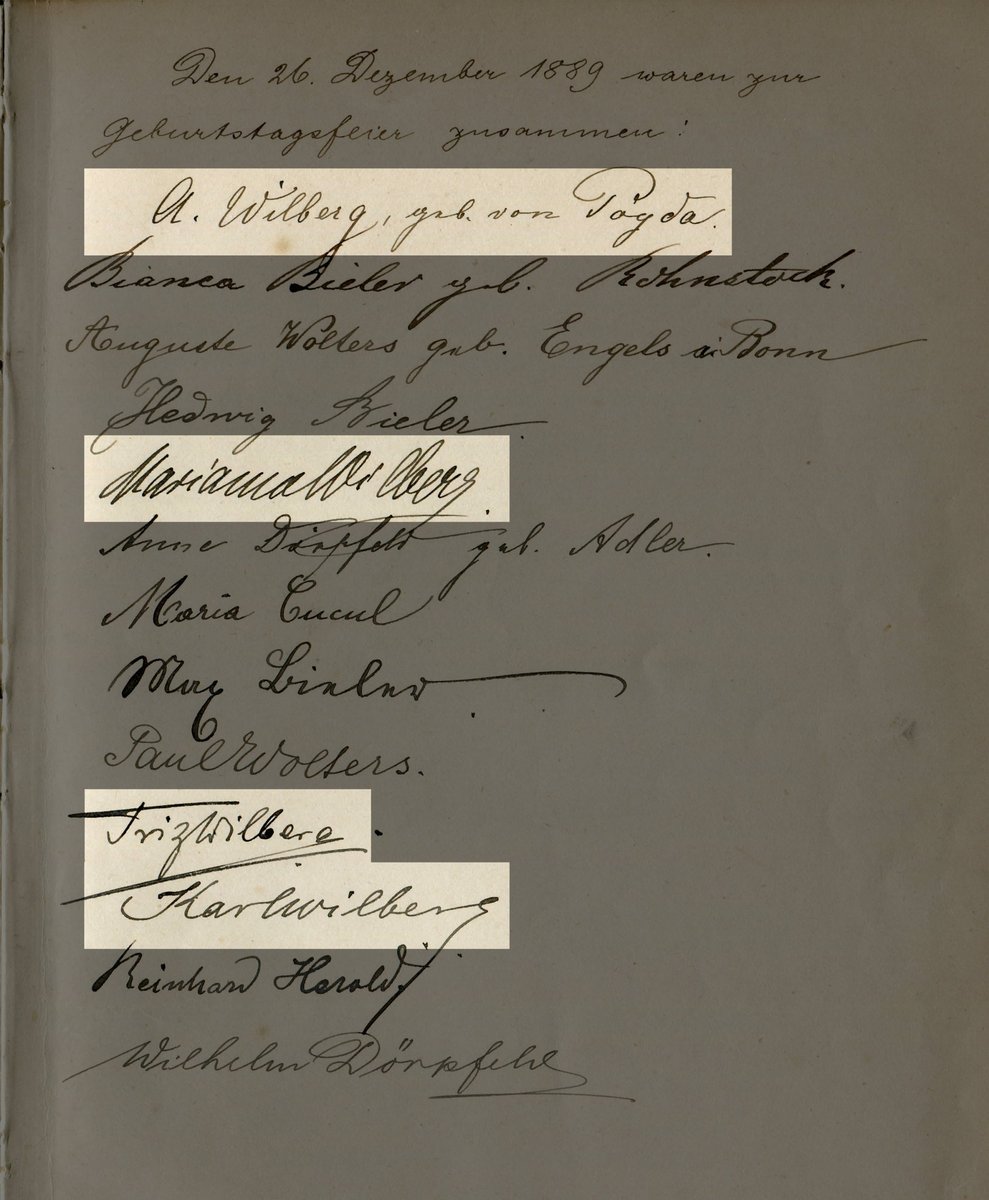 Den 26. Dezember 1889 waren zur
Geburtstagsfeier zusammen:
A. Wilberg, geb. von Pogda.
Bianca Bieler geb. Rohnstock.
Auguste Wolters geb. Engels a. Bonn
Hedwig Bieler
Marianna Wilberg
Anne Dörpfeld geb. Adler.
Maria Cucul
Max Bieler
Paul Wolters.
Friz Wilberg.
Karl Wilberg
Reinhard Herold
Wilhelm Dörpfeld